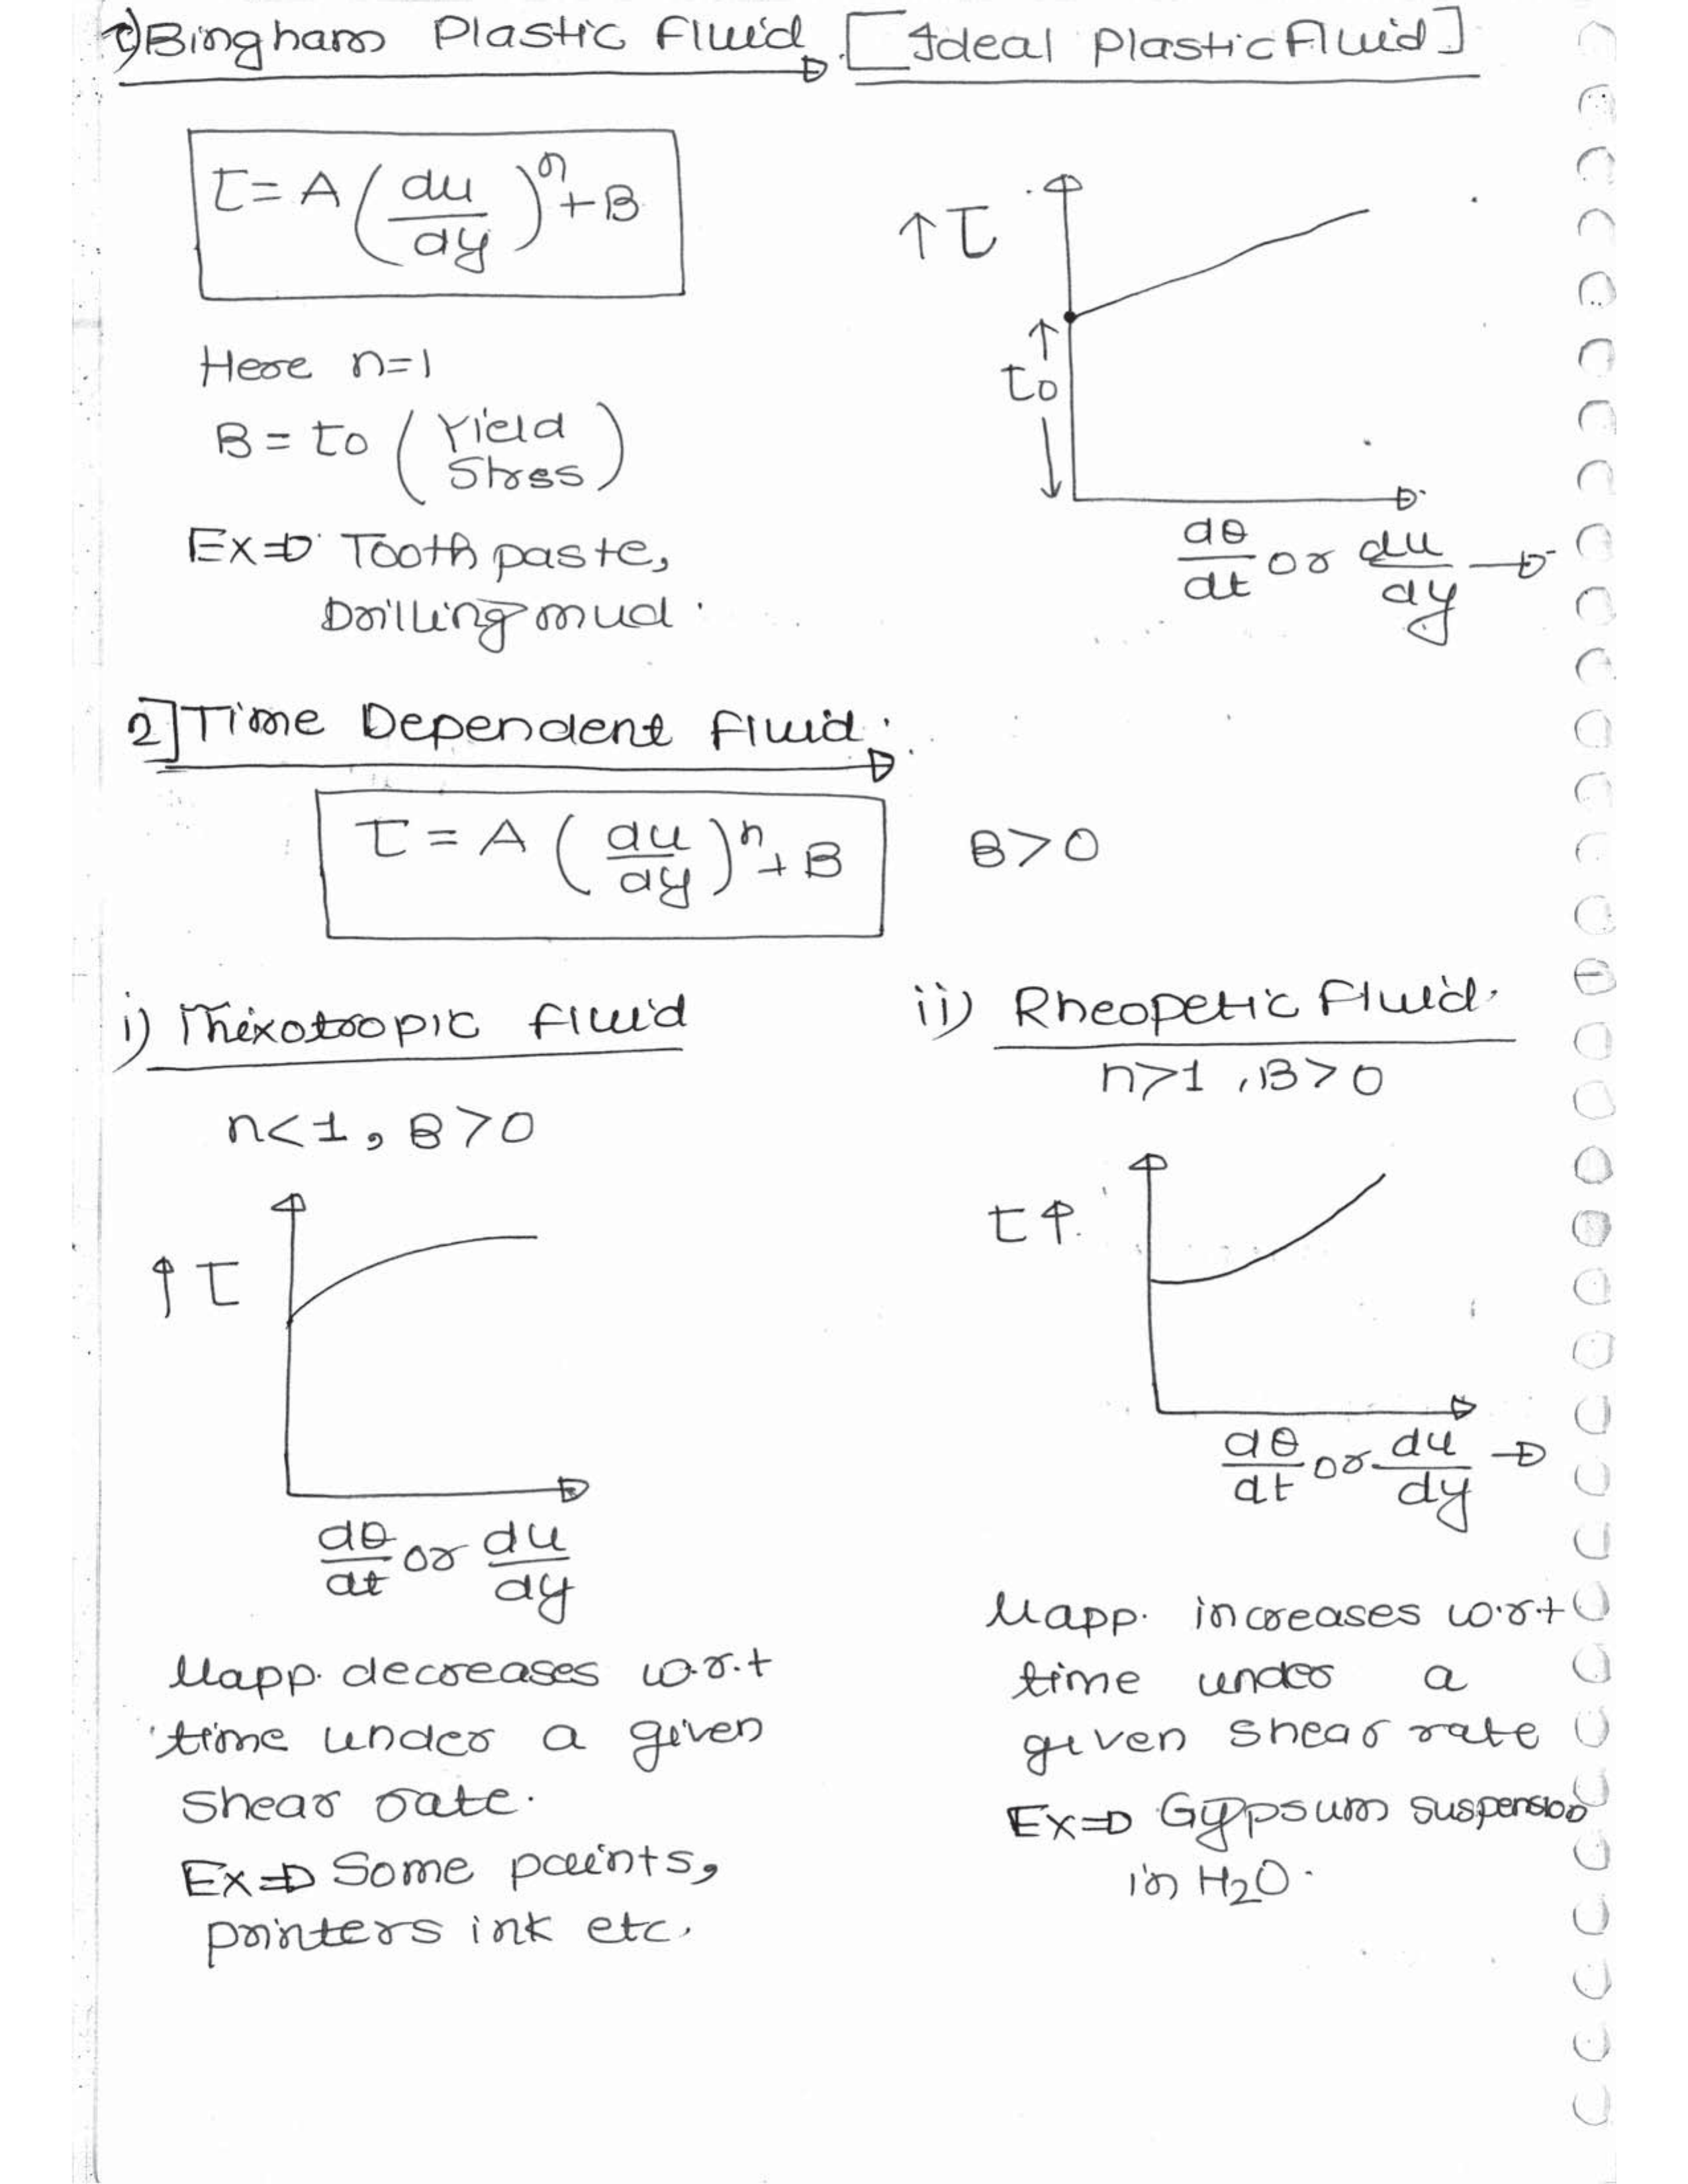 1) Bingham Plastic Fluid. [Ideal Plastic Fluid]
τ = A (du/dy)^n + B
↑ τ
Here n=1
B = τo (Yield Stress)
↑
τo
↓
dθ/dt or du/dy →
Ex⇒ Tooth paste,
Drilling mud.
2] Time Dependent Fluid.
τ = A (du/dy)^n + B
B>0
i) Thixotropic fluid
n<1, B>0
↑ τ
dθ/dt or du/dy
μapp. decreases w.r.t
time under a given
shear rate.
Ex⇒ Some paints,
printers ink etc.
ii) Rheopetic Fluid.
n>1, B>0
τ ↑
dθ/dt or du/dy →
μapp. increases w.r.t
time under a
given shear rate
Ex⇒ Gypsum suspension
in H₂O.